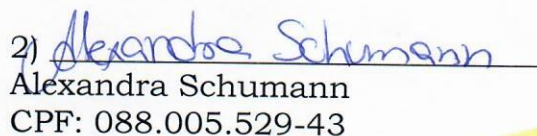 2) Alexandra Schumann
Alexandra Schumann
CPF: 088.005.529-43